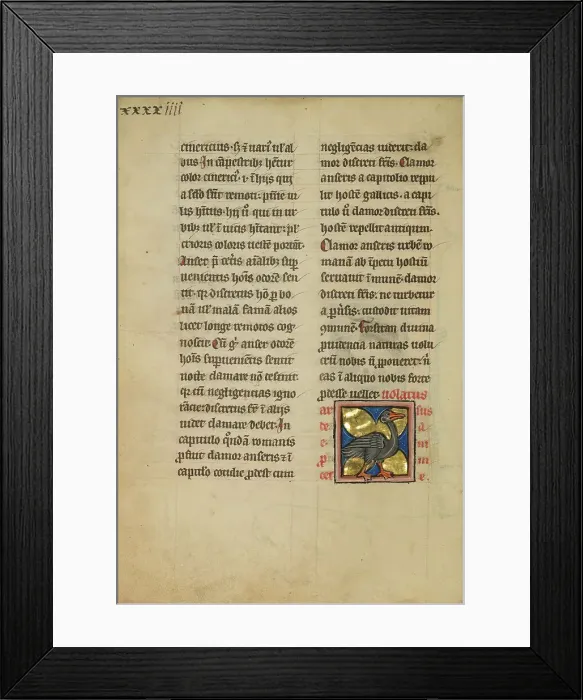 xxxxiiii
cinericius· ſʒ ĩ nari ul̾ al
bus In cãpeſtribʒ hẽtur
color cinericiꝰ· i· ĩ hijs qui
a ſeđo ſũt remoti: pñie ui
lis hĩtus· hij ũ qui in ur
bibʒ ul̾ ĩ uicis hĩtant: pl̾
crioris coloris ueſtẽ portãt·
Anſer p̃ cet̃is aĩalibʒ ſuꝑ
uenientis hoĩs odorẽ ſen
tit· qꝛ diſcretus hõ ꝑ bo
nã ul̾ malã famã alios
licet longe remotos cog
noſcit· Cũ g̾ anſer odorẽ
hoĩs ſuꝑueniẽtis ſentit
nocte clamare nõ ceſſat·
qꝛ cũ negligencias igno
rãcie: diſcretus fr̃ ĩ alijs
uidet clamare debet· In
capitulo quõdã romanis
ꝓfuit clamor anſeris· ⁊ ĩ
capitlo cotidie ꝓdeſt cum
negligẽcias uiderit: cla
mor diſcreti fr̃is· Clamor
anſeris a capitolio reppu
lit hoſtẽ gallicũ· a capi
tulo ũ clamor diſcreti fr̃is·
hoſtẽ repellit antiquum·
Clamor anſeris urbẽ ro
manã ab ĩpetu hoſtiũ
ſeruauit ĩmunẽ· clamor
diſcreti fr̃is: ne turbetur
a ꝑũſis: cuſtodit uitam
9munẽ· Forſitan diuina
ꝓuidencia naturas uolu
crũ nobis ñ ꝓponeret: ñ
eas ĩ aliquo nobis forte
ꝓdeſſe uellet· uolatus